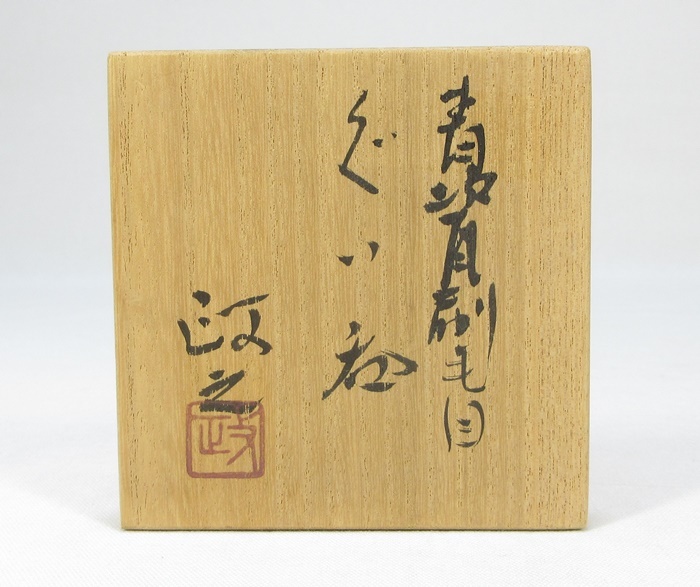 青瓷刷毛目
ぐい呑
政之
政